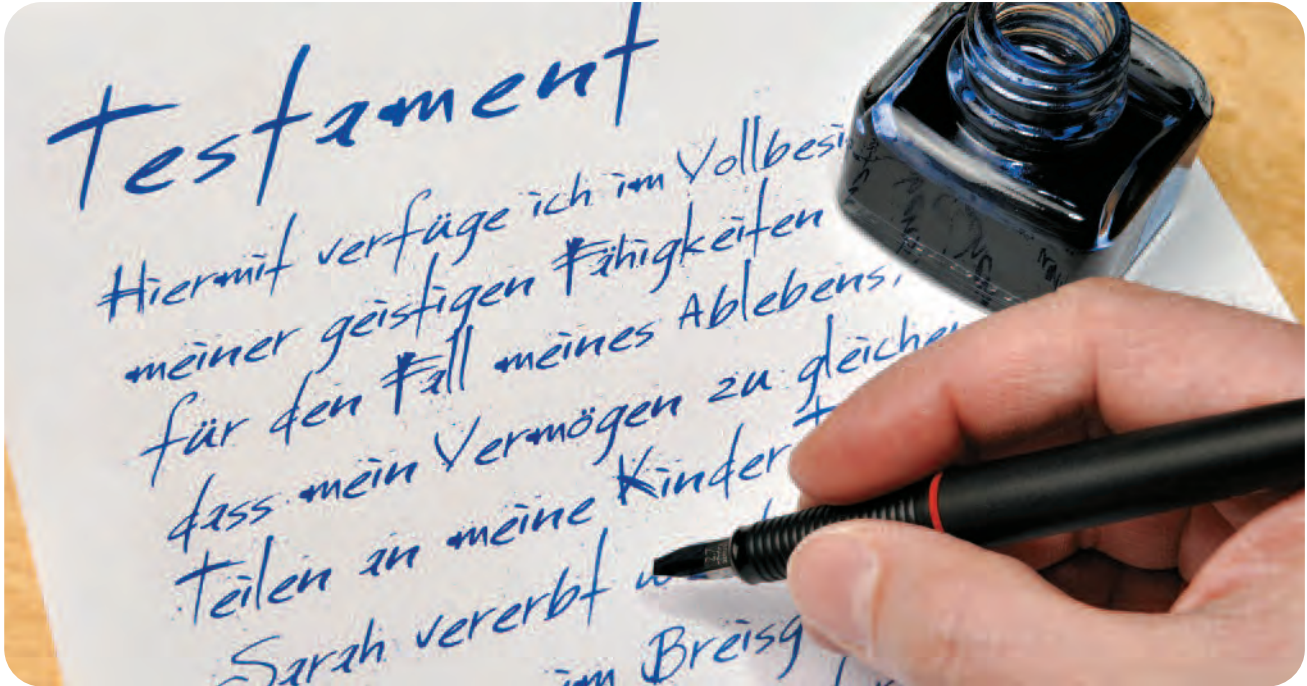 Testament
Hiermit verfüge ich im Vollbesi
meiner geistigen Fähigkeiten
für den Fall meines Ablebens,
dass mein Vermögen zu gleichen
Teilen an meine Kinder
Sarah vererbt
im Breisg